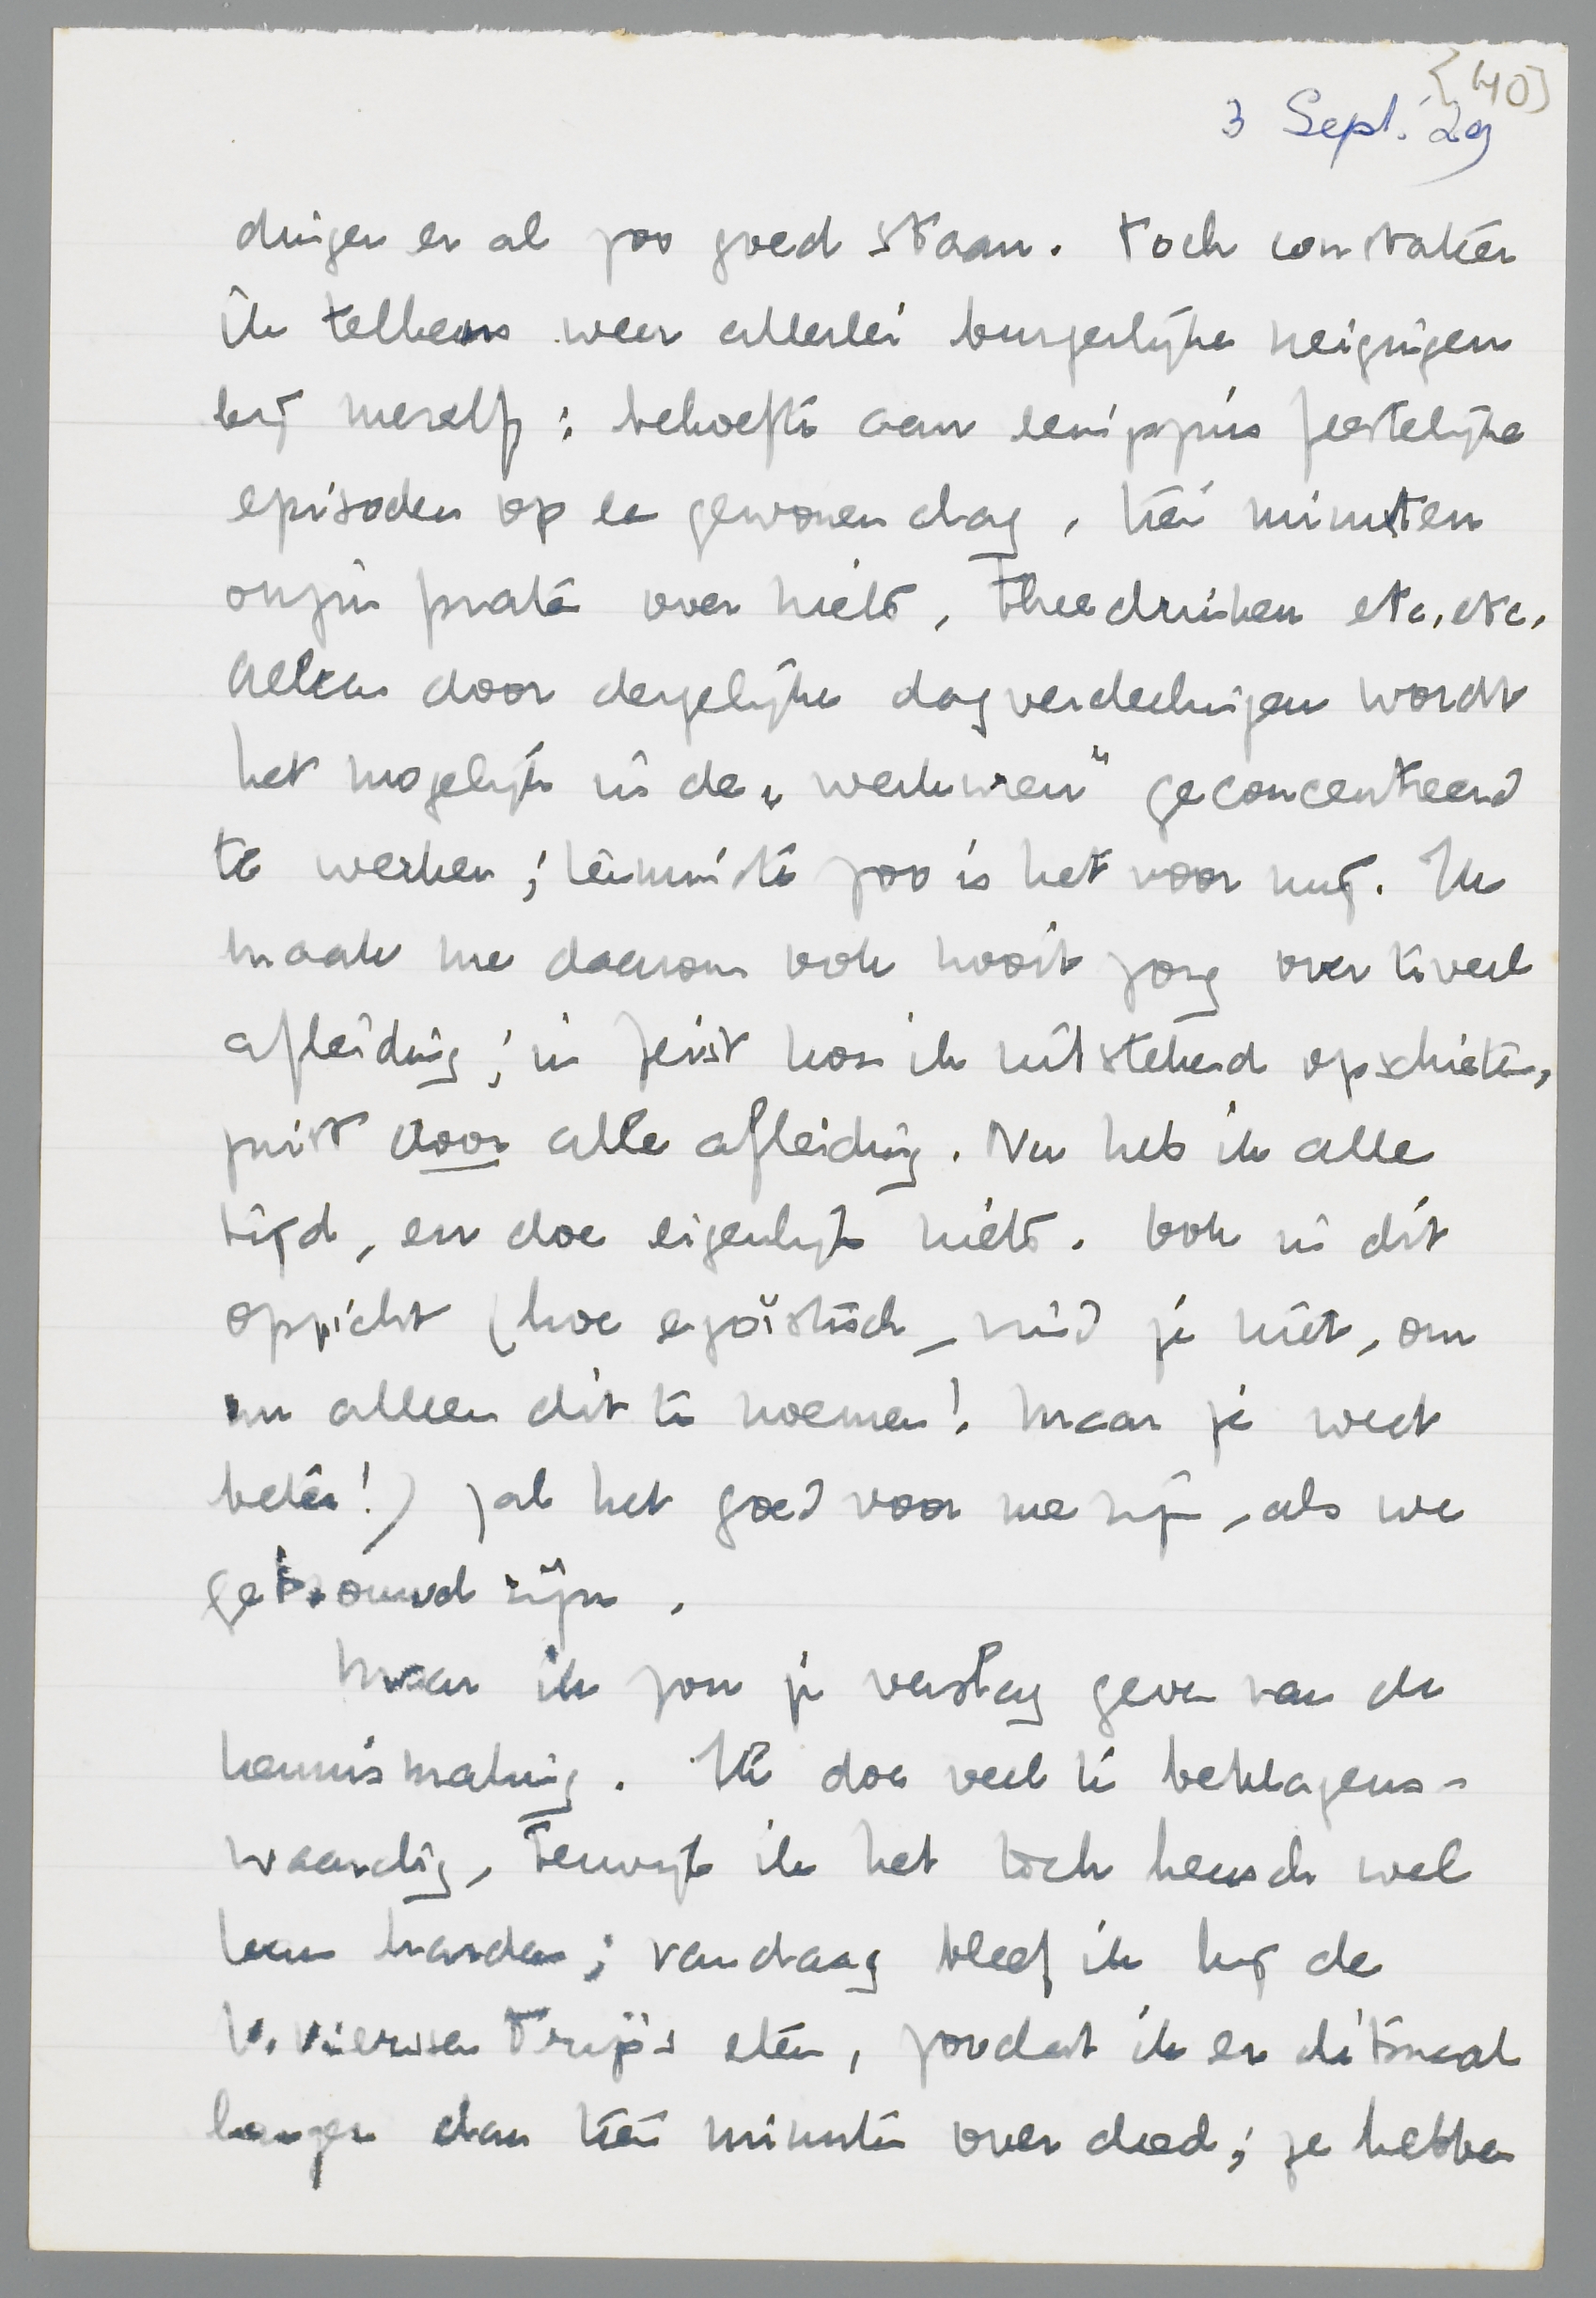 [40]
3 Sept. '29
dingen er al zoo goed staan. Toch constateer
ik telkens weer allerlei burgerlijke neigingen
bij mezelf; behoefte aan eenigszins feestelijke
episoden op een gewonen dag, tien minuten
onzin praten over niets, theedrinken etc. etc.
Alleen door dergelijke dagverdeelingen wordt
het mogelijk in de „werkuren" geconcentreerd
te werken; tenminste zoo is het voor mij. Ik
maak me daarom ook nooit zorg over te veel
afleiding; in Zeist kon ik uitstekend opschieten,
juist door alle afleiding. Nu heb ik alle
tijd, en doe eigenlijk niets. Ook in dit
opzicht (hoe egoïstisch, vind je niet, om
nu alleen dit te noemen! Maar je weet
beter!) zal het goed voor me zijn, als we
getrouwd zijn.
Maar ik zou je verslag geven van de
kennismaking. Ik doe veel te beklagens-
waardig, terwijl ik het toch heusch wel
kan harden; vandaag bleef ik bij de
Trip's eten, zoodat ik er ditmaal
langer dan tien minuten over deed; ze hebben